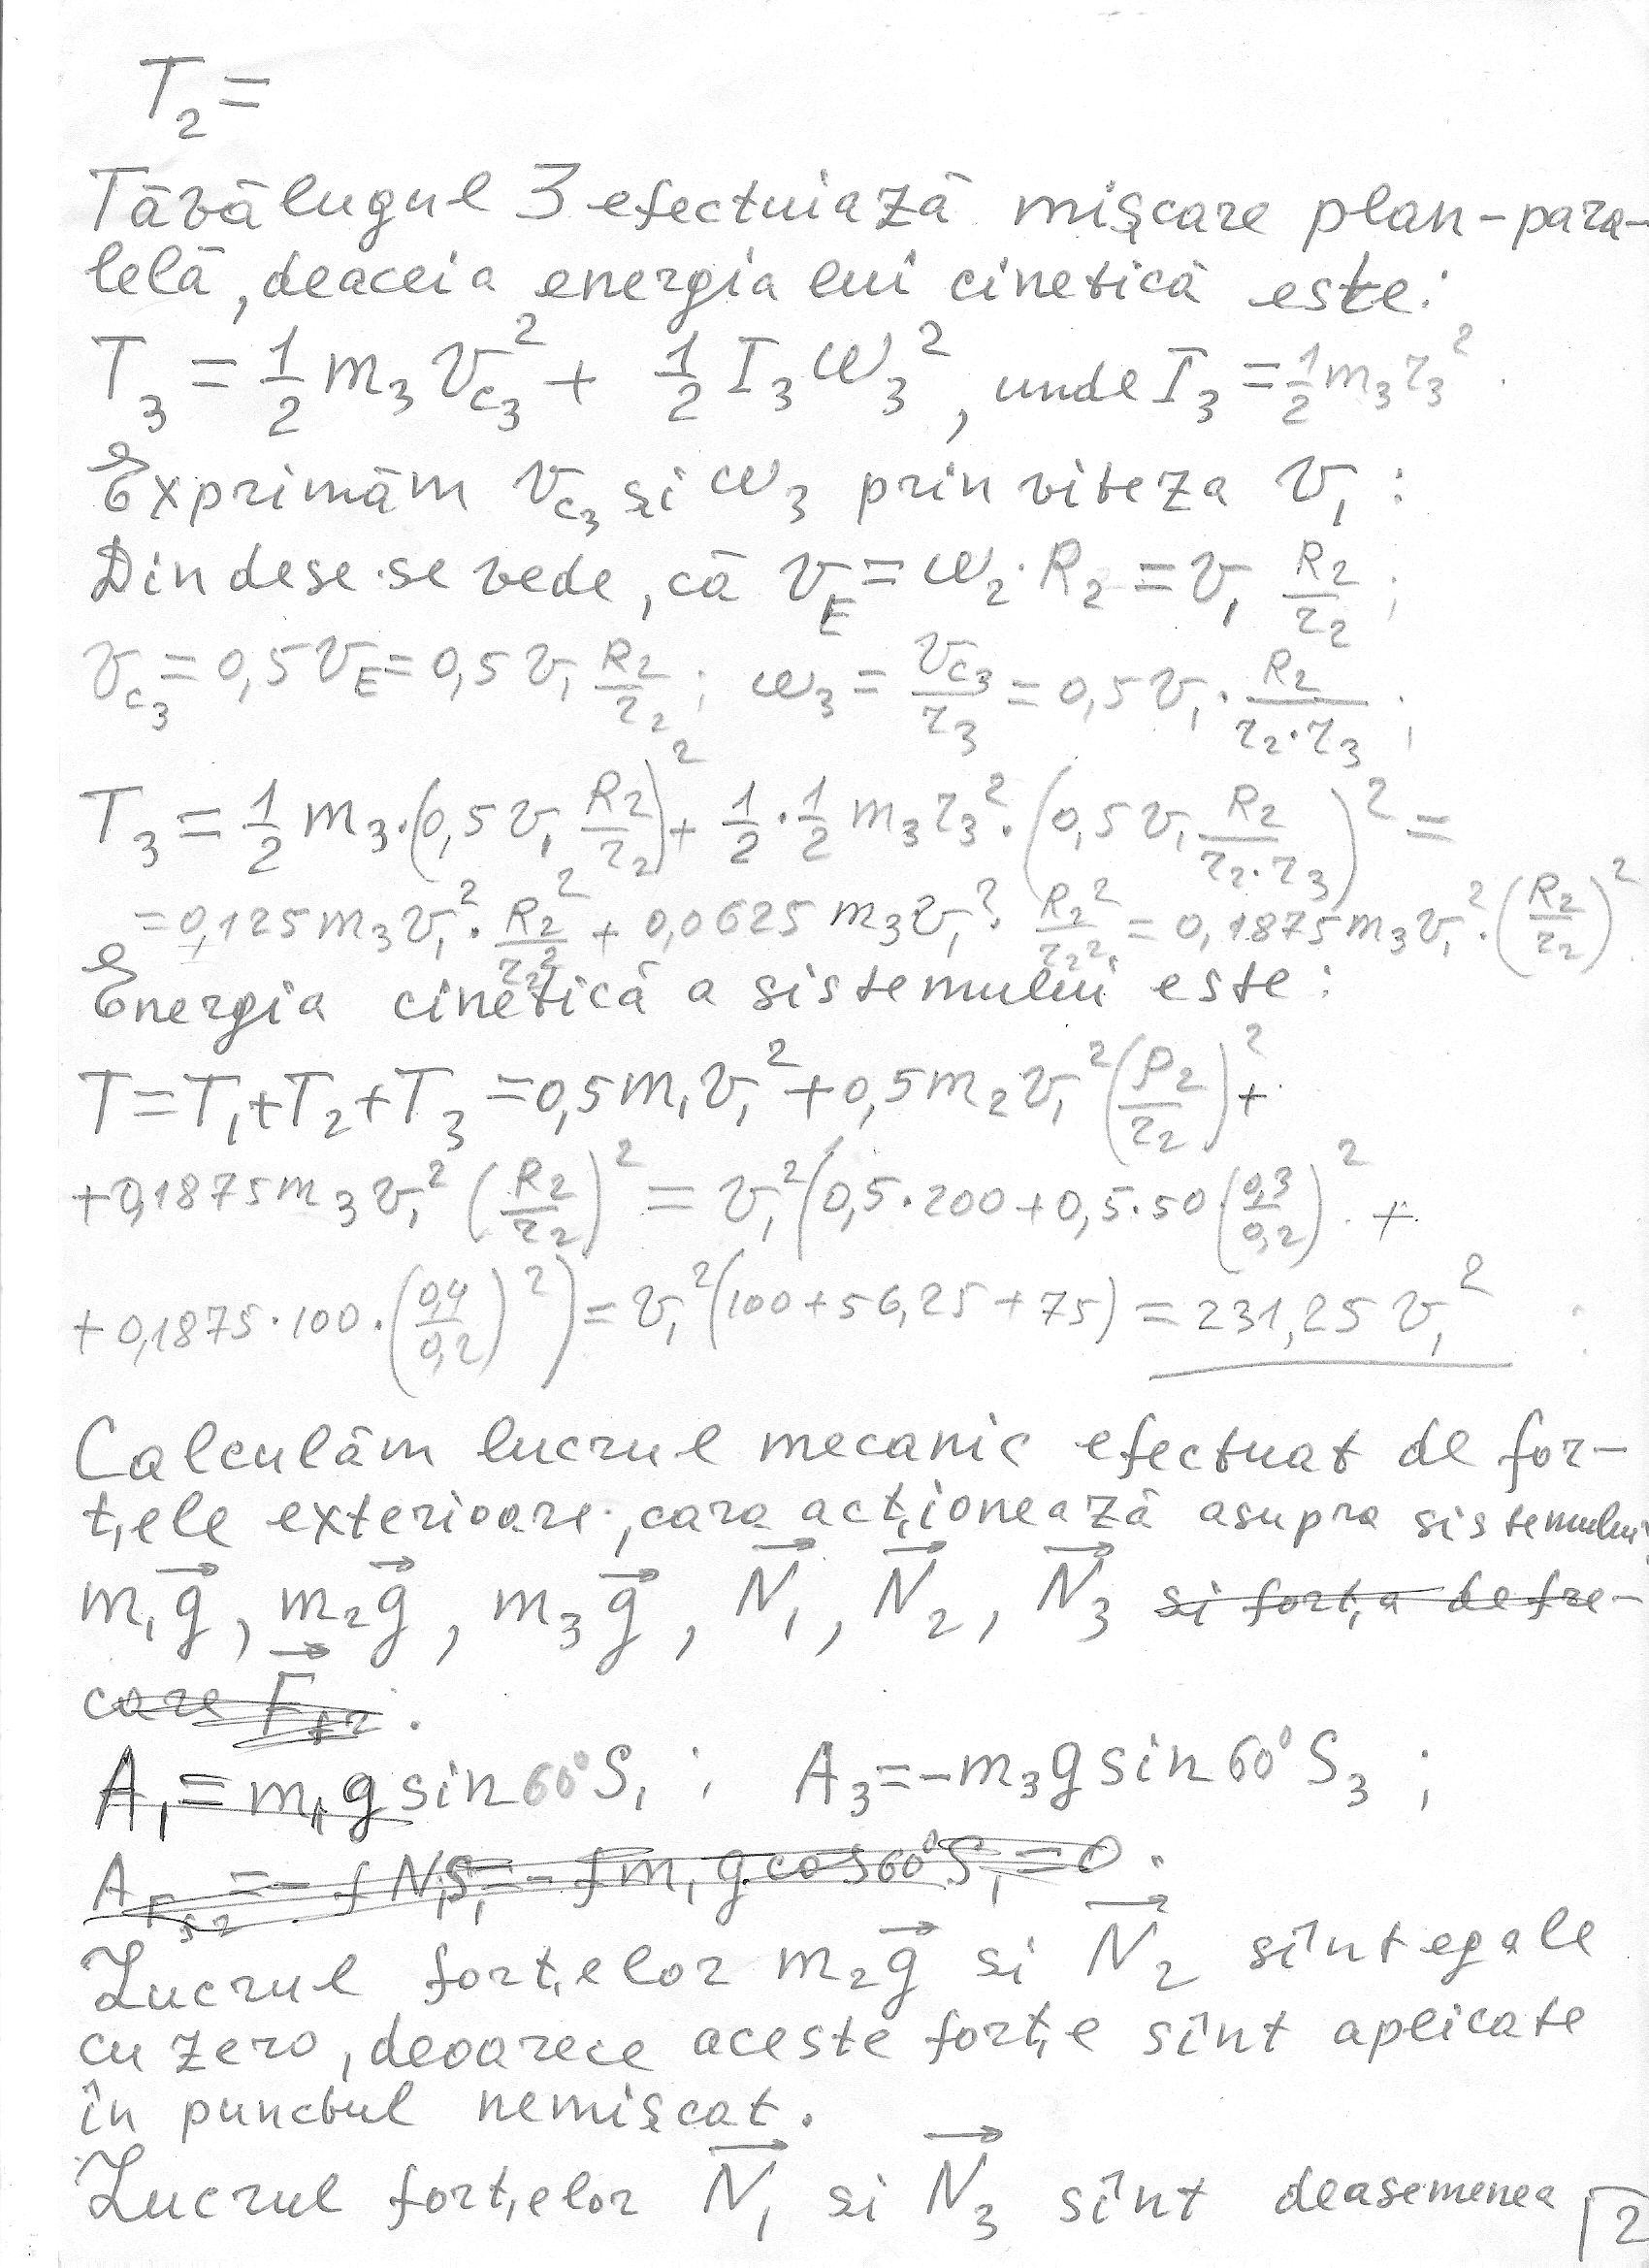 T₂ =
Tăvălugul 3 efectuiază mişcare plan-para-
lelă, deaceia energia lui cinetică este:
T₃ = 1/2 m₃ v_C₃² + 1/2 I₃ ω₃², unde I₃ = 1/2 m₃ r₃².
Exprimăm v_C₃ şi ω₃ prin viteza v₁:
Din dese. se vede, că v_E = ω₂·R₂ = v₁ R₂/r₂;
v_C₃ = 0,5 v_E = 0,5 v₁ R₂/r₂; ω₃ = v_C₃/r₃ = 0,5 v₁· R₂/(r₂·r₃);
T₃ = 1/2 m₃·(0,5 v₁ R₂/r₂)² + 1/2·1/2 m₃ r₃²·(0,5 v₁ R₂/(r₂·r₃))² =
= 0,125 m₃ v₁²· R₂²/r₂² + 0,0625 m₃ v₁²· R₂²/r₂² = 0,1875 m₃ v₁²·(R₂/r₂)².
Energia cinetică a sistemului este:
T = T₁ + T₂ + T₃ = 0,5 m₁ v₁² + 0,5 m₂ v₁² (ρ₂/r₂)² +
+ 0,1875 m₃ v₁² (R₂/r₂)² = v₁² (0,5·200 + 0,5·50 (0,3/0,2)² +
+ 0,1875·100·(0,4/0,2)²) = v₁² (100 + 56,25 + 75) = 231,25 v₁²
Calculăm lucrul mecanic efectuat de for-
ţele exterioare, cara acţionează asupra sistemului
m₁g⃗, m₂g⃗, m₃g⃗, N⃗₁, N⃗₂, N⃗₃ si forţa de fre-
care F⃗f2.
A₁ = m₁ g sin 60° S₁; A₃ = -m₃ g sin 60° S₃;
= - f N₁S₁ = - f m₁ g cos 60° S₁ = 0.
Lucrul forţelor m₂g⃗ si N⃗₂ sînt egale
cu zero, deoarece aceste forţe sînt aplicate
în punctul nemişcat.
Lucrul forţelor N⃗₁ si N⃗₃ sînt deasemenea
2